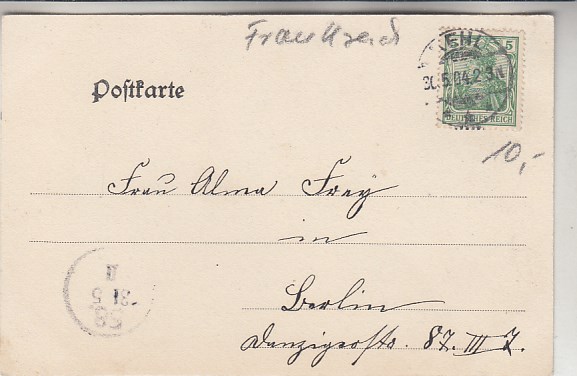 Frankreich
KEHL
30.5.04.2-3N
5
DEUTSCHES REICH
Postkarte
10,-
Frau Alma Frey
in
Berlin
Danzigerstr. 87. III
58
31 5
II